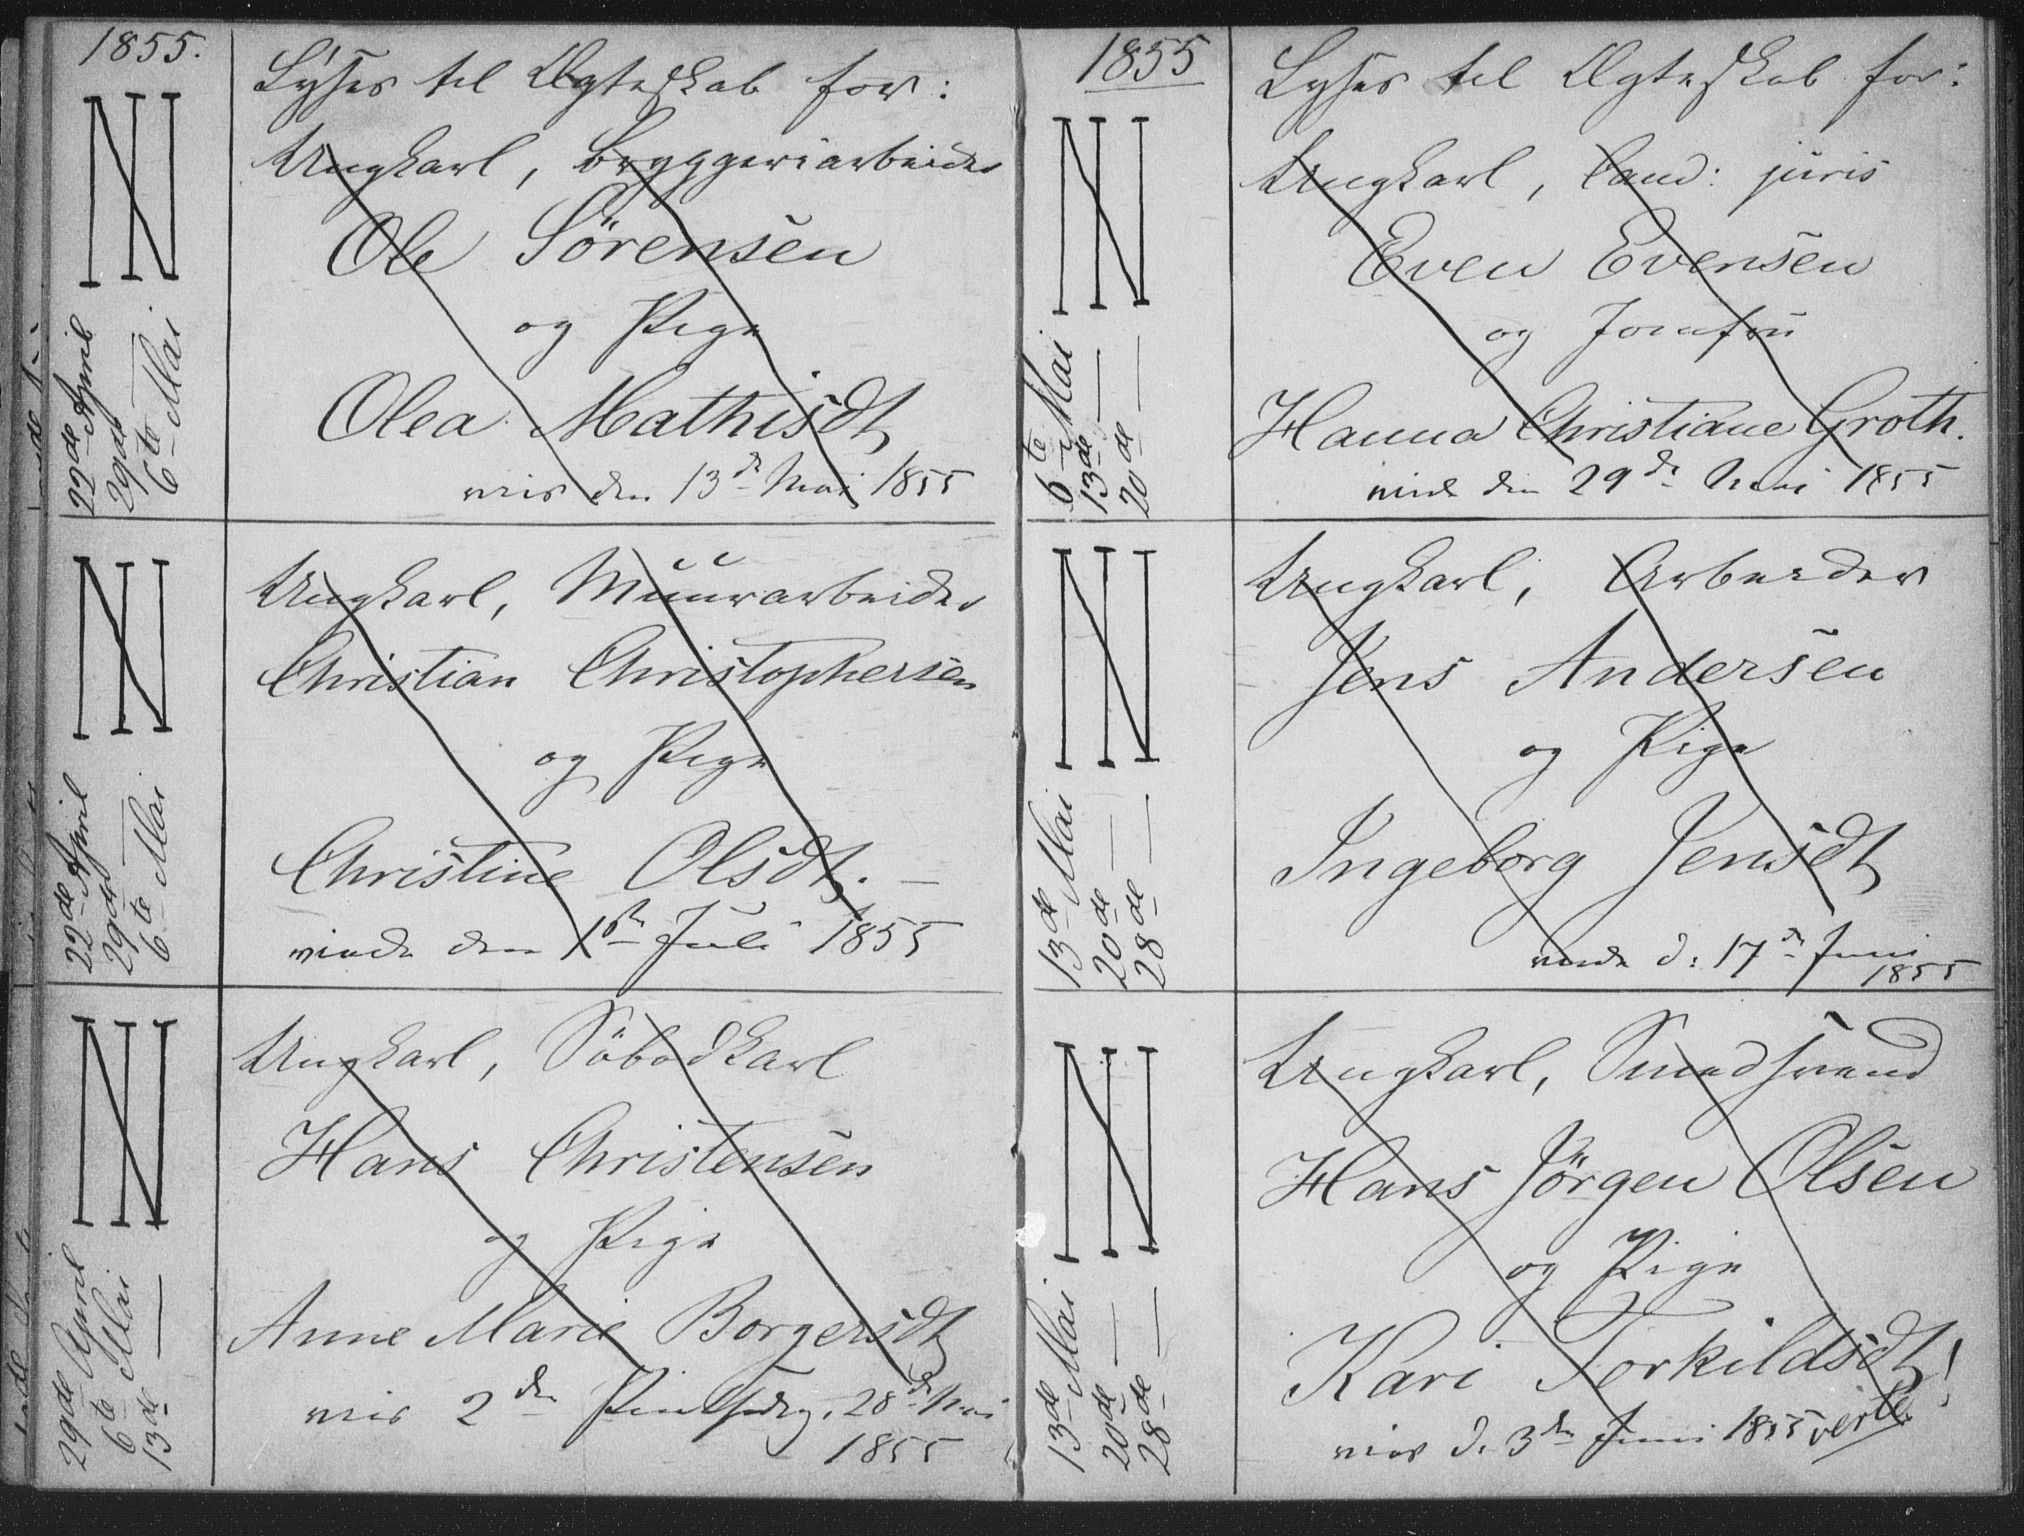 1855.
Lyses til Ægteskab for:
22de April
29de —
6te Mai
Ungkarl, Bryggeriarbeider
Ole Sörensen
og Pige
Olea Mathisdt
viis den 13de Mai 1855
22de April
29de —
6te Mai
Ungkarl, Muurarbeider
Christian Christophersen
og Pige
Christine Olsdt. —
viede den 1ste Juli 1855
29de April
6te Mai
13de —
Ungkarl, Söbodkarl
Hans Christensen
og Pige
Anne Marie Borgersdt
viis 2den Pintsedag, 28de Mai
1855
1855
Lyses til Ægteskab for:
6te Mai
13de —
20de —
Ungkarl, Cand: juris
Even Evensen
og Jomfru
Hanna Christiane Groth.
viede den 29de Mai 1855
13de Mai
20de —
28de —
Ungkarl, Arbeider
Jens Andersen
og Pige
Ingeborg Jensdt
viede d: 17de Juni
1855
13de Mai
20de —
28de —
Ungkarl, Smedsvend
Hans Jörgen Olsen
og Pige
Kari Torkildsdt
viis d. 3de Juni 1855 verte!